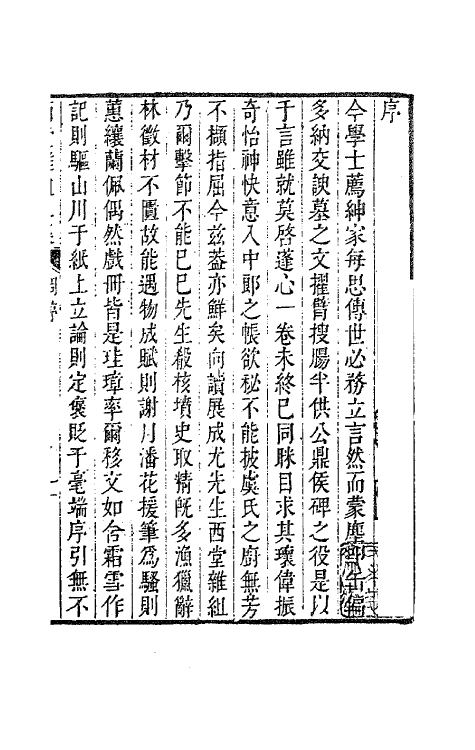 序
今學士薦紳家每思傳世必務立言然而蒙塵
多納交諛墓之文擢臂搜腸半供公鼎侯碑之役是以
于言雖就莫啓蓬心一卷未終已同眯目求其瓌偉振
奇怡神快意入中郎之帳欲秘不能披虞氏之廚無芳
不擷指屈今兹葢亦鮮矣向讀展成尤先生西堂雜組
乃爾擊節不能已已先生殽核墳史取精旣多漁獵辭
林徵材不匱故能遇物成賦則謝月潘花援筆爲騷則
蕙纕蘭佩偶然戲冊皆是珪璋率爾移文如含霜雪作
記則驅山川于紙上立論則定褒貶于毫端序引無不